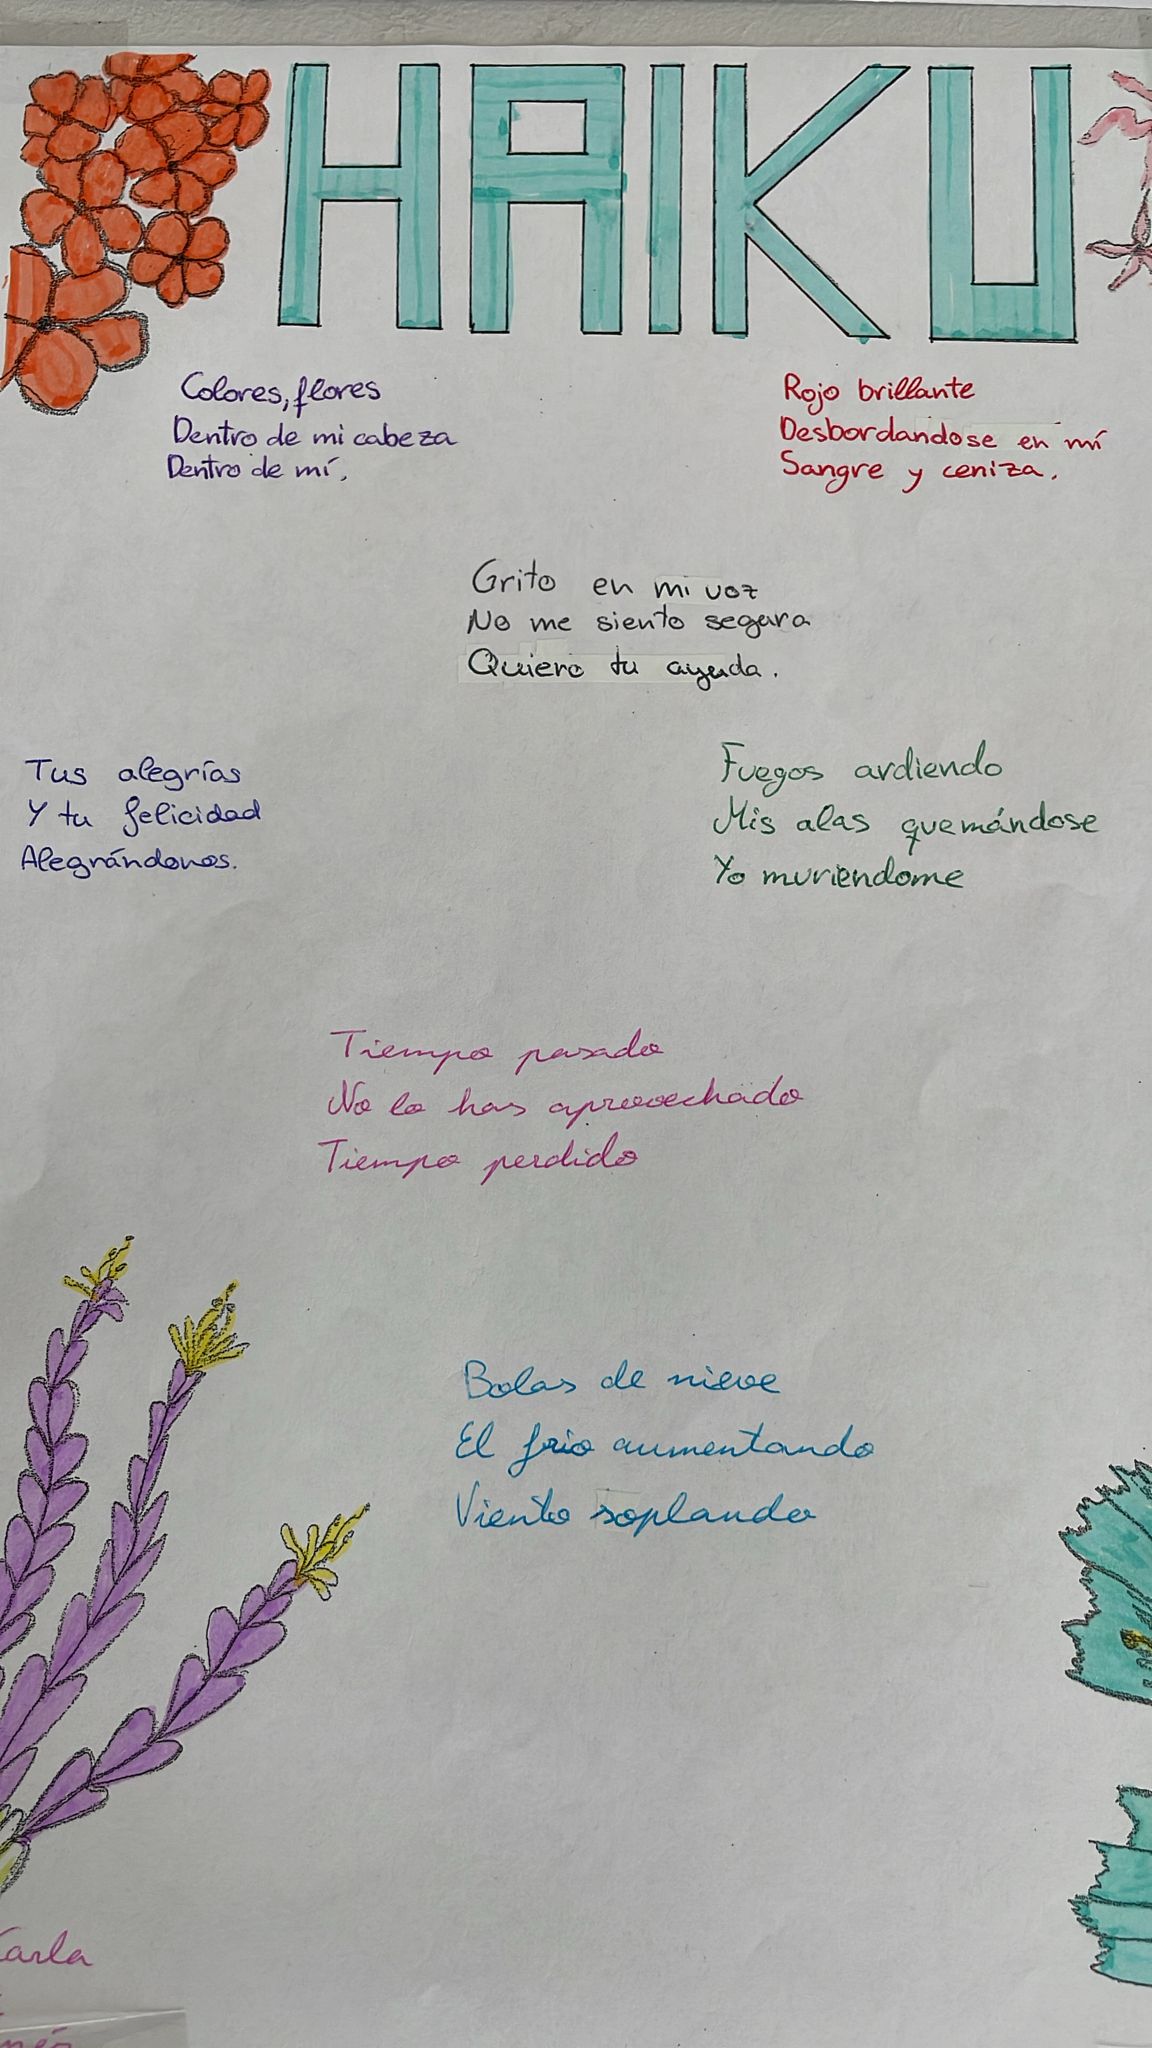 HAIKU
Colores, flores
Dentro de mi cabeza
Dentro de mí.
Rojo brillante
Desbordandose en mí
Sangre y ceniza.
Grito en mi voz
No me siento segura
Quiero tu ayuda.
Tus alegrías
Y tu felicidad
Alegrándonos.
Fuegos ardiendo
Mis alas quemándose
Yo muriendome
Tiempo pasado
No lo has aprovechado
Tiempo perdido
Bolas de nieve
El frio aumentando
Viento soplando